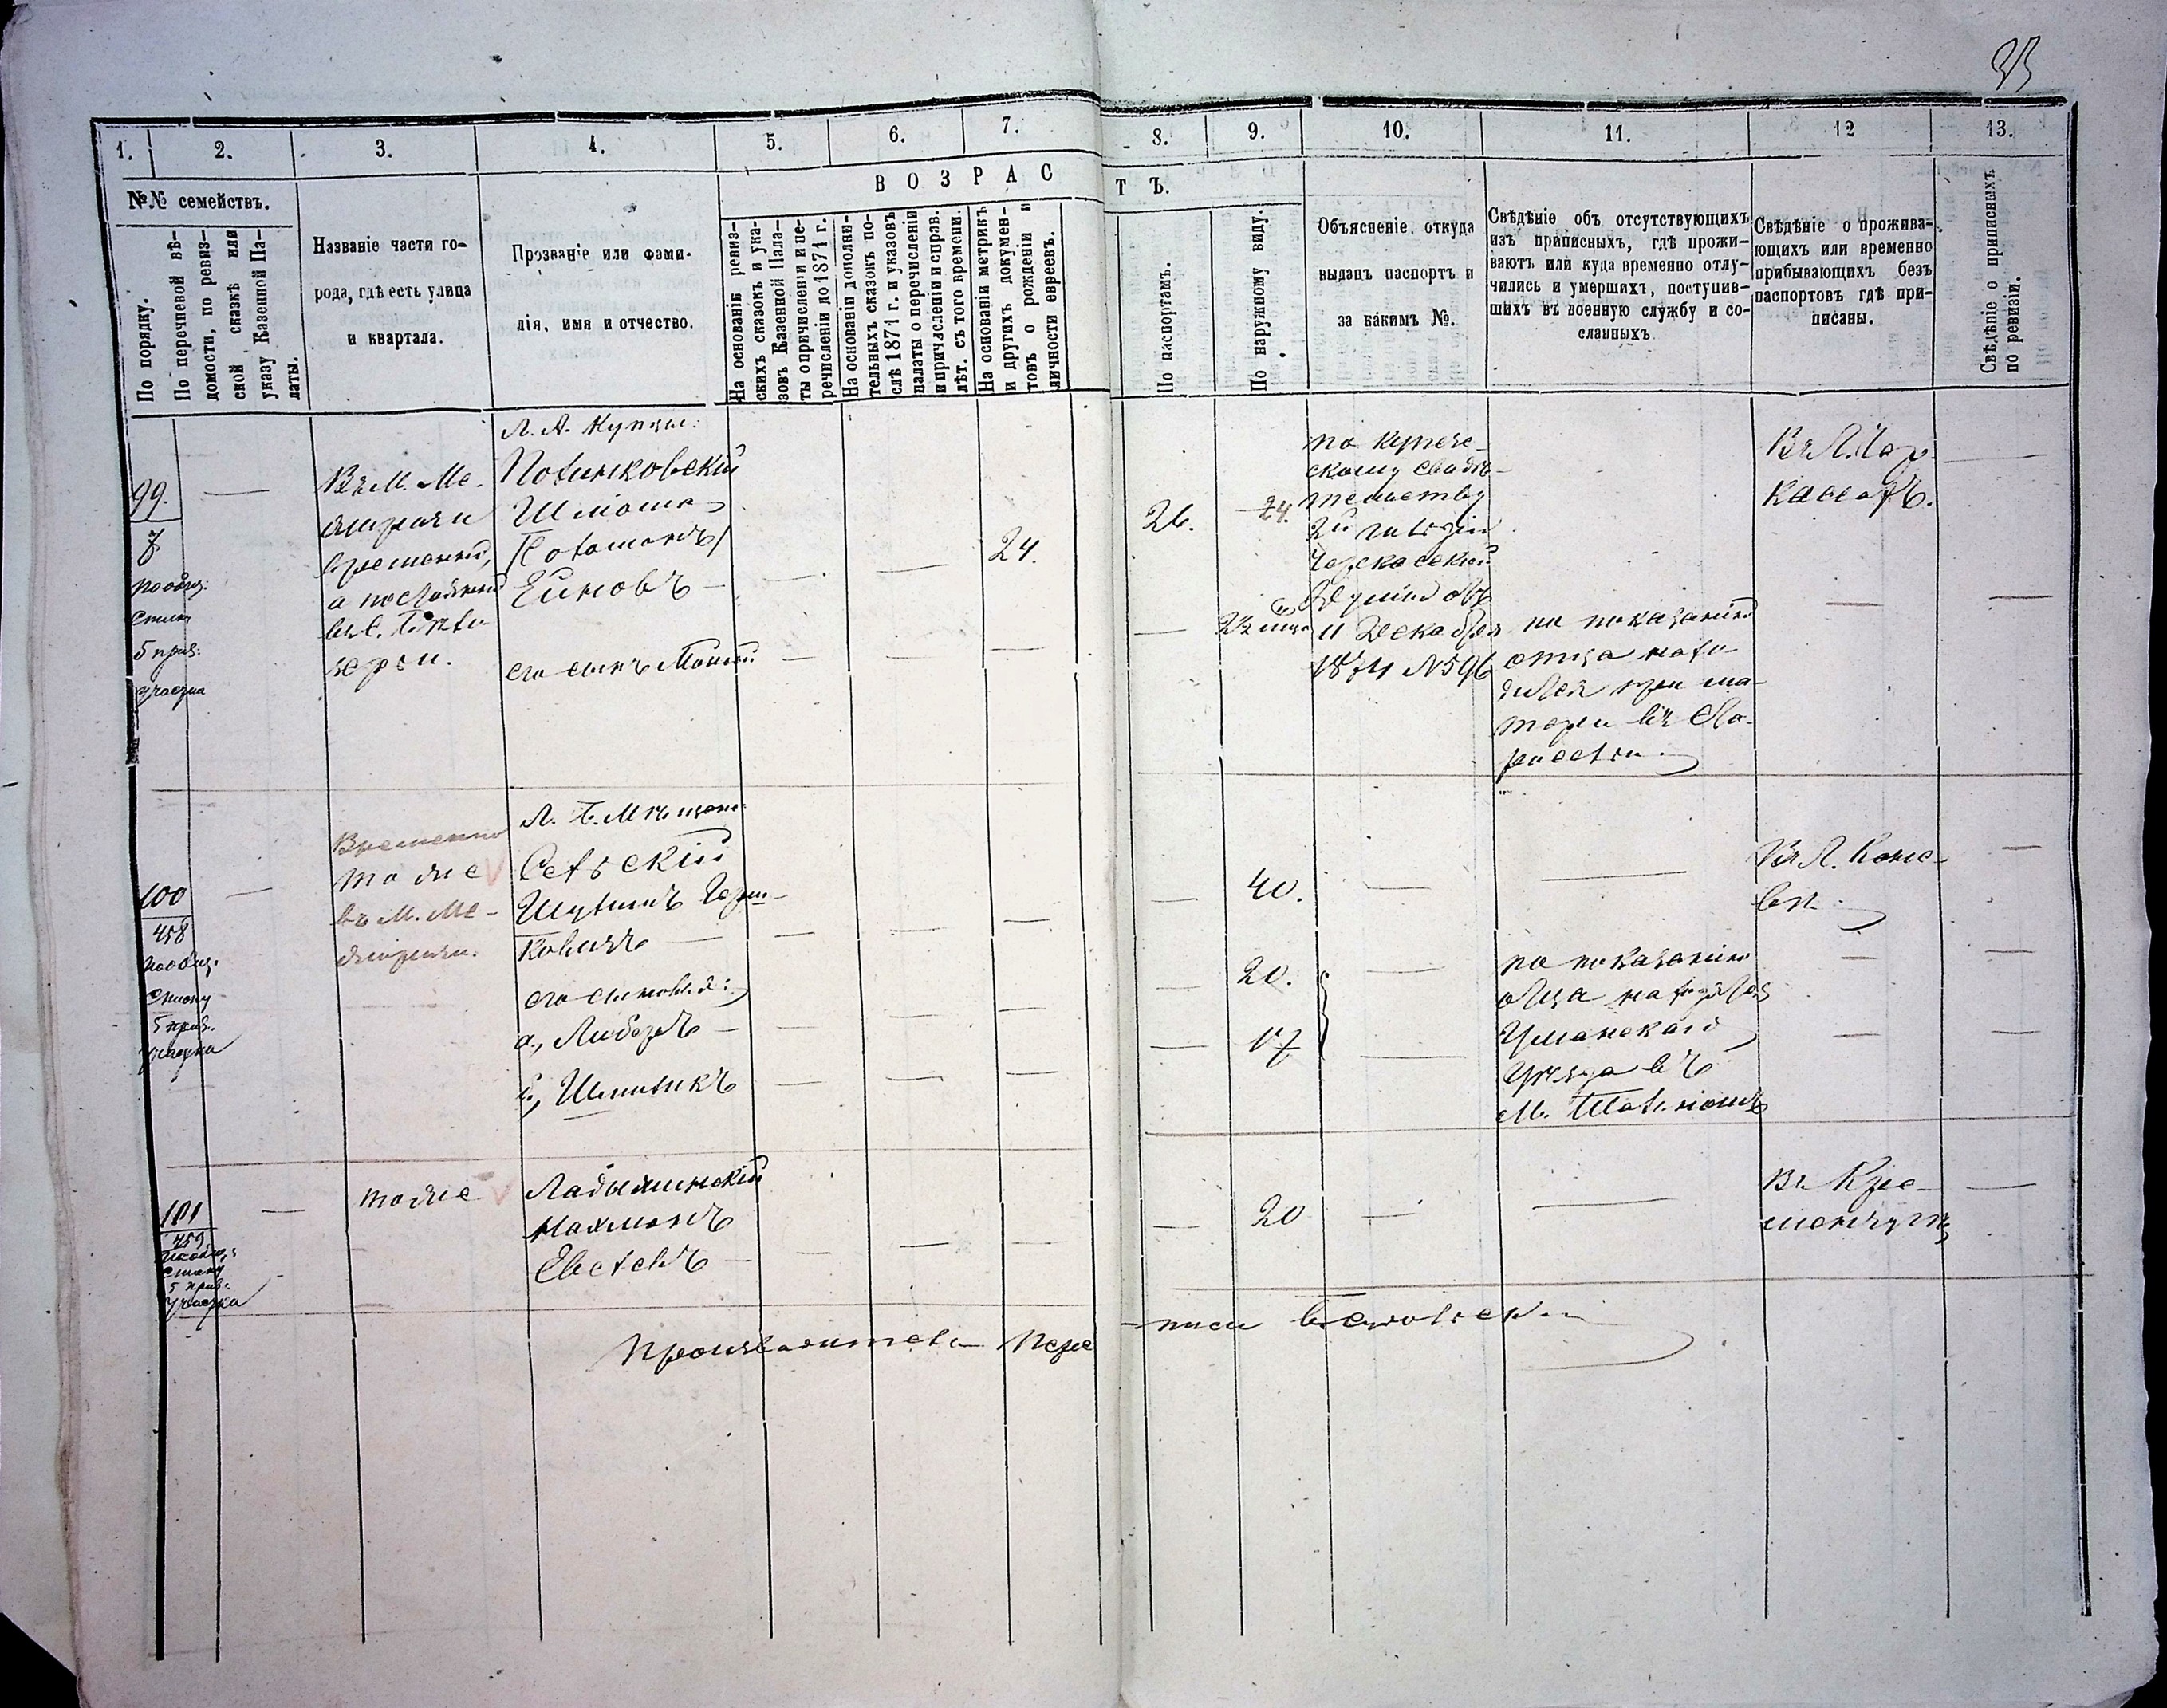 33
1.
2.
3.
4.
5.
6.
7.
8.
9.
10.
11.
12
13.
№№ семействъ.
В О З Р А С Т Ъ.
По порядку.
По перечневой вѣ-
домости, по ревиз-
ской сказкѣ или
указу Казенной Па-
латы.
Названіе части го-
рода, гдѣ есть улица
и квартала.
Прозваніе или фами-
лія, имя и отчество.
На основаніи ревиз-
скихъ сказокъ и ука-
зовъ Казенной Пала-
ты о причисленіи и пе-
речисленіи до 1871 г.
На основаніи дополни-
тельныхъ сказокъ по-
слѣ 1871 г. и указовъ
палаты о перечисленіи
и причисленіи и справ.
лѣт. съ того времени.
На основаніи метрикъ
и другихъ докумен-
товъ о рожденіи и
личности евреевъ.
По паспортамъ.
По наружному виду.
Объясненіе откуда
выданъ паспортъ и
за какимъ №.
Свѣдѣніе объ отсутствующихъ
изъ приписныхъ, гдѣ прожи-
ваютъ или куда временно отлу-
чились и умершихъ, поступив-
шихъ въ военную службу и со-
сланныхъ
Свѣдѣніе о прожива-
ющихъ или временно
прибывающихъ безъ
паспортовъ гдѣ при-
писаны.
Свѣдѣніе о приписныхъ
по ревизіи.
99.
7
по общ.
списку
5 приз.
участка
Въ М. Ме-
временный,
а постоянный
Л. А. Купцы:
Шліома
Еиновъ
24.
26.
24.
по купече-
скому свидѣ-
тельству
2й гильдіи
Черкасской
Думы отъ
11 Декабря
1874 №596
Въ Г. Чер-
кассахъ.
его сынъ
по показанію
отца нахо-
дится при ма-
тери въ
100
458
по общ.
списку
5 приз.
участка
Временно
тоже
въ М. Ме-
Л. Б. Мѣщане
40.
Въ Г. Кане-
вѣ.
его сыновья:
а, Лейзеръ
20.
17
по показанію
отца находятся
Уманскаго
Уѣзда въ
М.
101
459
по общ.
списку
5 приз.
участка
тоже
Ладыжинскій
Нахманъ
20
Въ Кре-
менчугѣ
Производитель Переписи